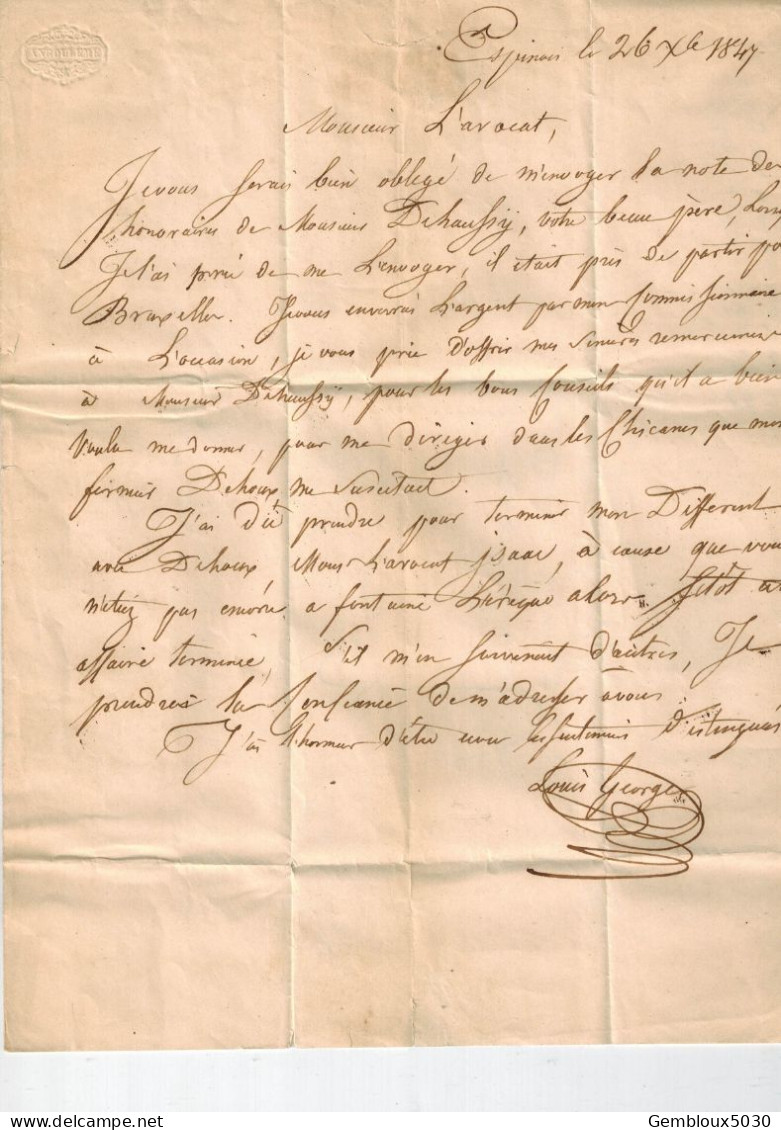 Espinois le 26 Xbe 1847
Monsieur L'avocat,
Je vous serais bien obligé de m'envoyer la note de
honoraires de Monsieur Dehaussÿ, votre beau père, Lors
Je l'ai prié de me L'envoyer, il était près de partir po
Bruxelles. Je vous enverrai L'argent par mon Commissionnaire
à L'occasion, je vous prie d'offrir mes sincères remerciem
à Monsieur Dehaussÿ, pour les bons Conseils qu'il a bien
Voulu me donner, pour me diriger dans les Chicanes que mon
fermier Dehoux me Suscitait.
J'ai dû prendre pour terminer mon Différent
avec Dehoux, Mons L'avocat jsaac, à cause que vou
n'étiez pas encore a fontaine L'évêque alors.
affaire terminée, S'il m'en Surviennent d'autres, Je
prendrai la Confiance de m'adresser à vous.
J'ai l'honneur d'être avec les sentimens distingués
Louis George
Gembloux5030